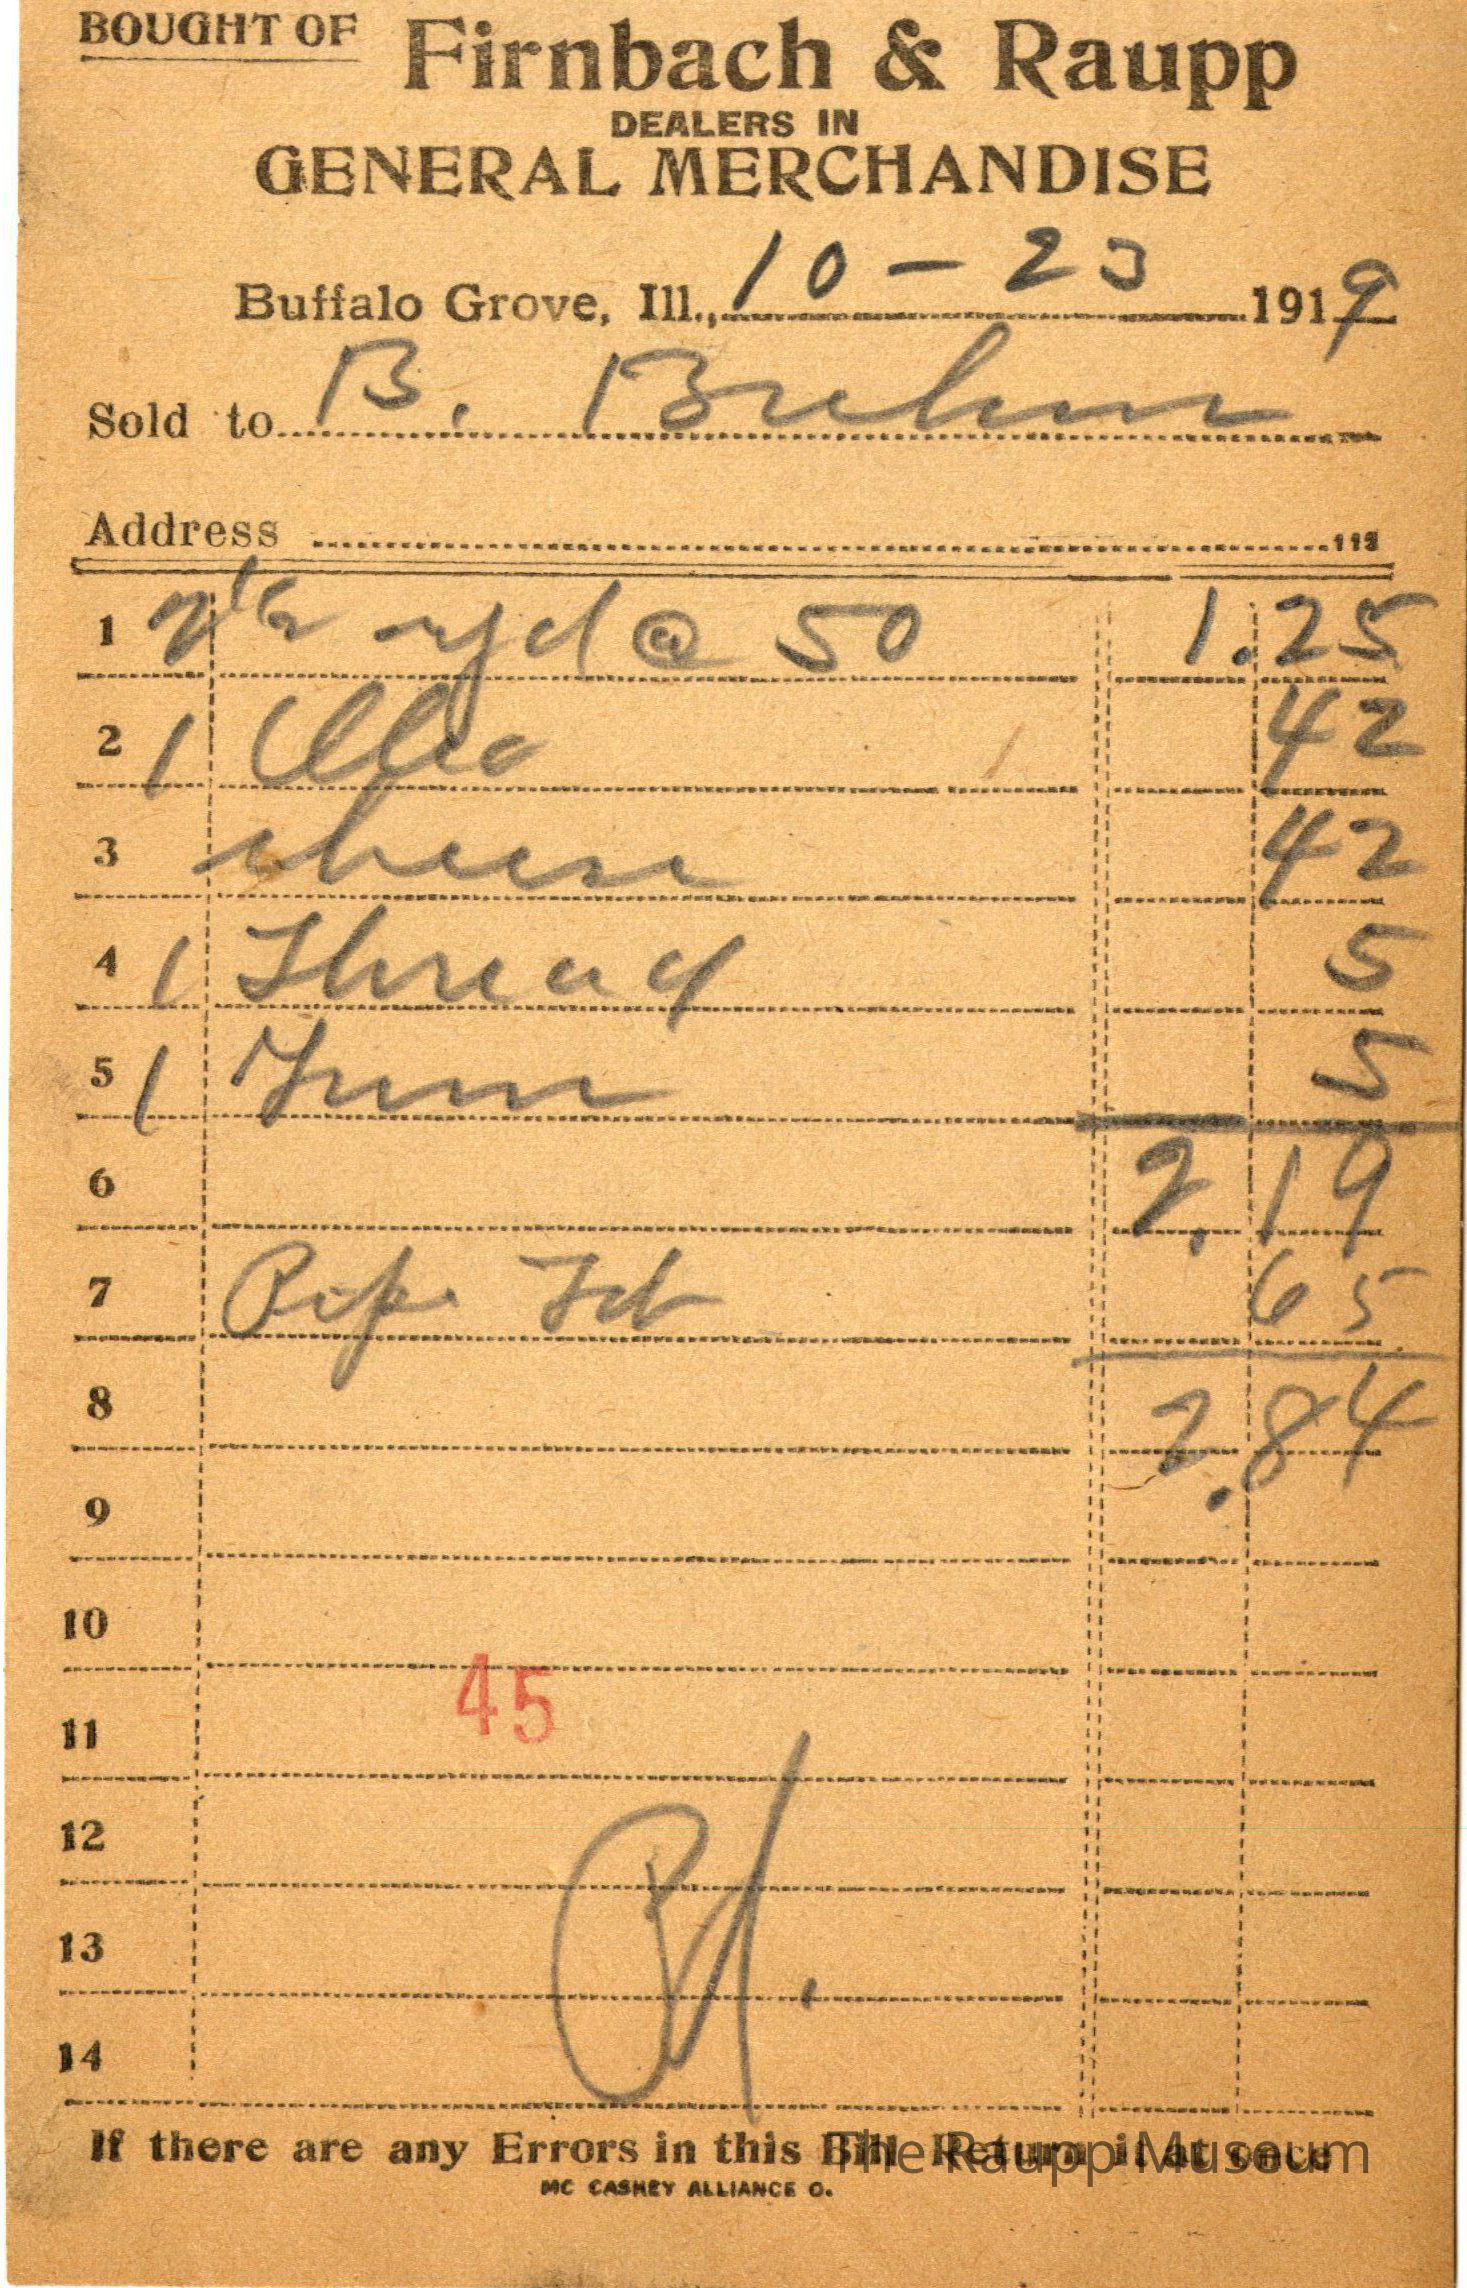 BOUGHT OF Firnbach & Raupp
DEALERS IN
GENERAL MERCHANDISE
Buffalo Grove, Ill., 10 - 23 1919
Sold to B.
Address 113
1 2 1/2 yd @ 50 1.25
2 1 Oleo 42
3 cheese 42
4 1 Thread 5
5 1 5
6 2.19
7 65
8 2.84
9
10
45
11
12
13
14
If there are any Errors in this Bill Return it at once
The Raupp Museum
MC CASKEY ALLIANCE O.